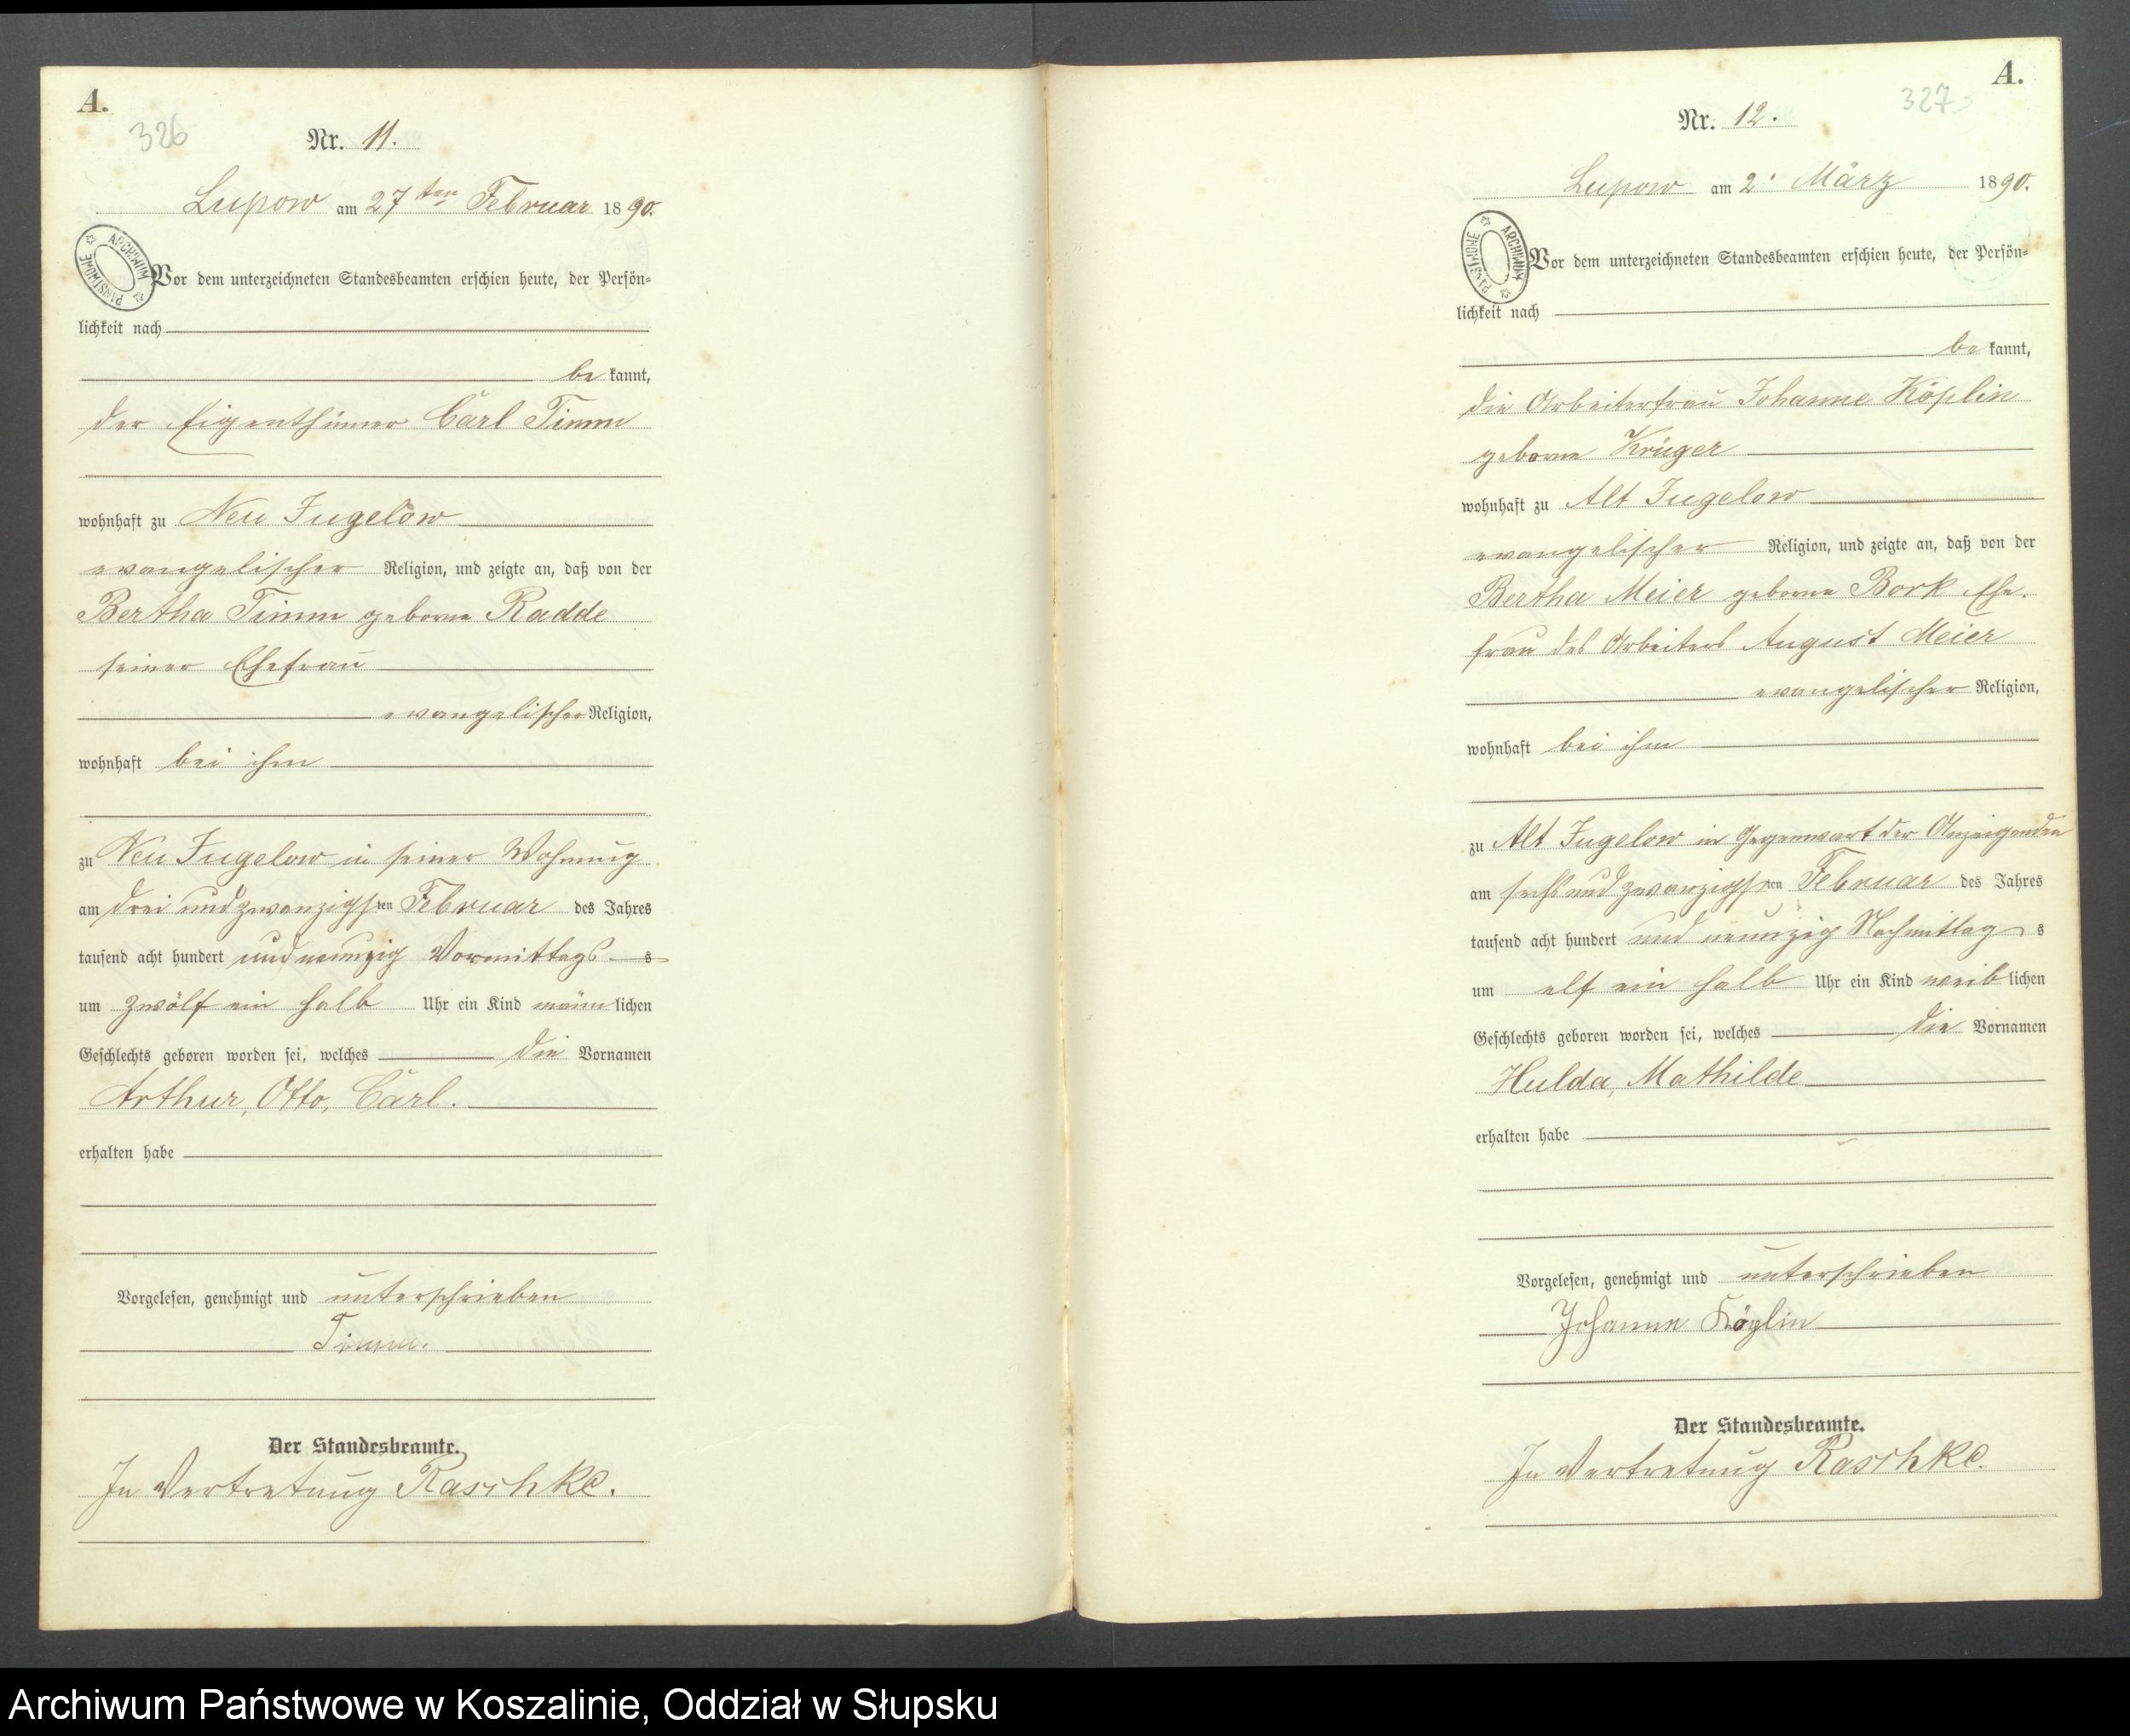 A.
326
Nr. 11.
Lupow am 27ten Februar 1890.
ARCHIWUM PAŃSTWOWE
Vor dem unterzeichneten Standesbeamten erschien heute, der Persön=
lichkeit nach
be kannt,
der Eigenthümer Carl Timm
wohnhaft zu Neu Jugelow
evangelischer Religion, und zeigte an, daß von der
Bertha Timm geborne Radde
seiner Ehefrau
evangelischer Religion,
wohnhaft bei ihm
zu Neu Jugelow in seiner Wohnung
am drei und zwanzigsten Februar des Jahres
tausend acht hundert und neunzig Vormittags s
um zwölf ein halb Uhr ein Kind männ lichen
Geschlechts geboren worden sei, welches die Vornamen
Arthur, Otto, Carl.
erhalten habe
Vorgelesen, genehmigt und unterschrieben
Timm.
Der Standesbeamte.
In Vertretung Raschke.
A.
327
Nr. 12.
Lupow am 2. März 1890.
ARCHIWUM PAŃSTWOWE
Vor dem unterzeichneten Standesbeamten erschien heute, der Persön=
lichkeit nach
be kannt,
die Arbeiterfrau Johanne Köplin
geborne Krüger
wohnhaft zu Alt Jugelow
evangelischer Religion, und zeigte an, daß von der
Bertha Meier geborne Bork Ehe.
frau des Arbeiters August Meier
evangelischer Religion,
wohnhaft bei ihm
zu Alt Jugelow in Gegenwart der Anzeigenden
am sechs und zwanzigsten Februar des Jahres
tausend acht hundert und neunzig Nachmittag s
um elf ein halb Uhr ein Kind weib lichen
Geschlechts geboren worden sei, welches die Vornamen
Hulda, Mathilde
erhalten habe
Vorgelesen, genehmigt und unterschrieben
Johanne Köplin
Der Standesbeamte.
In Vertretung Raschke.
Archiwum Państwowe w Koszalinie, Oddział w Słupsku